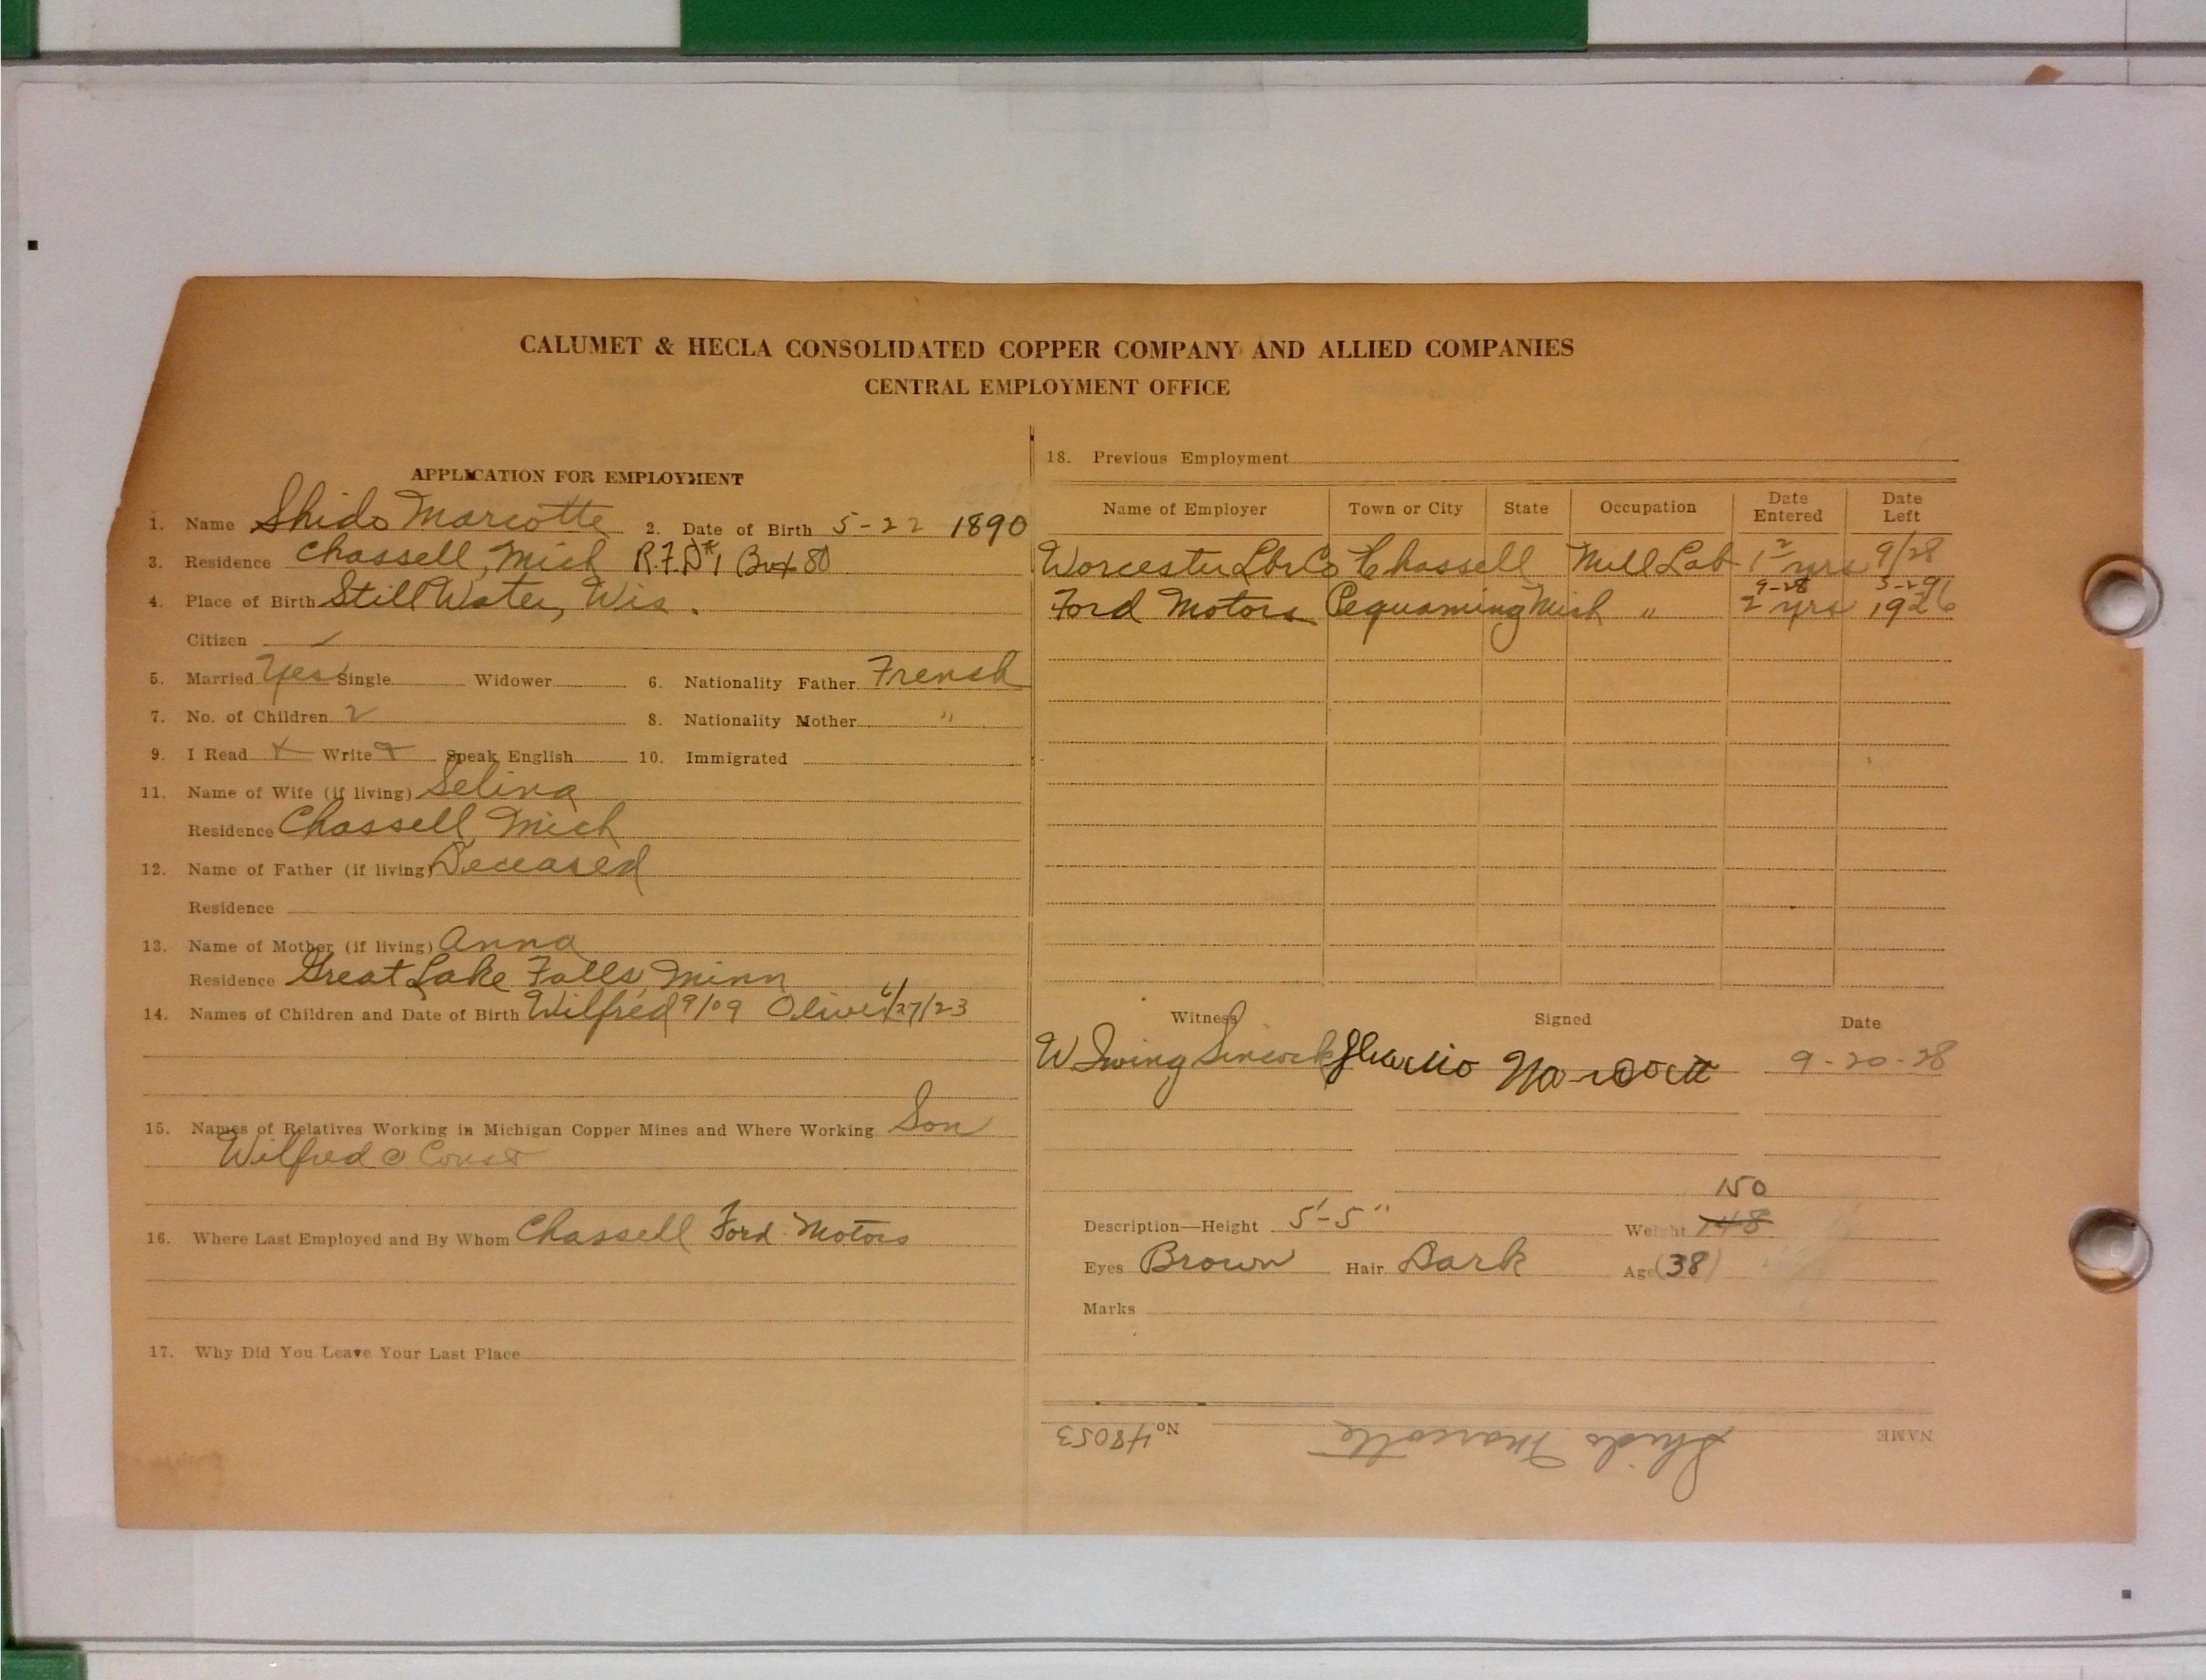 CALUMET & HECLA CONSOLIDATED COPPER COMPANY AND ALLIED COMPANIES
CENTRAL EMPLOYMENT OFFICE
APPLICATION FOR EMPLOYMENT
1. Name Shido Marcotte 2. Date of Birth 5-22 1890
3. Residence Chassell, Mich R.F.D #1 Box 80
4. Place of Birth Still Water, Wis.
Citizen ✓
5. Married Yes Single Widower 6. Nationality Father French
7. No. of Children 2 8. Nationality Mother "
9. I Read x Write x Speak English 10. Immigrated
11. Name of Wife (if living) Selina
Residence Chassell, Mich
12. Name of Father (if living) Deceased
Residence
13. Name of Mother (if living) Anna
Residence Great Lake Falls, Minn
14. Names of Children and Date of Birth Wilfred 9/09 Oliver 6/27/23
15. Names of Relatives Working in Michigan Copper Mines and Where Working Son
Wilfred @ Const
16. Where Last Employed and By Whom Chassell Ford Motors
17. Why Did You Leave Your Last Place
18. Previous Employment
Name of Employer Town or City State Occupation Date Entered Date Left
Worcester Lbr Co Chassell Mill Lab 1 2 yrs 9/28
9-28
Ford Motors Pequaming Mich " 2 yrs 1926
Witness Signed Date
W Irving Marcott 9-20-28
150
Description—Height 5'-5" Weight 148
Eyes Brown Hair Dark Age (38)
Marks
NAME Shido Marcotte No 48053